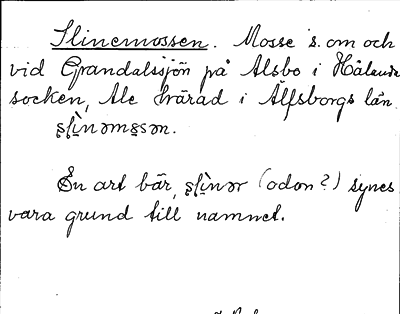 Slinemossen. Mosse s. om och
vid Grandalssjön på Alsbo i Hålanda
socken, Ale härad i Älfsborgs län.
ʂʅìnəmʂsən.
En art bär, ʂʅìnər (odon?) synes
vara grund till namnet.